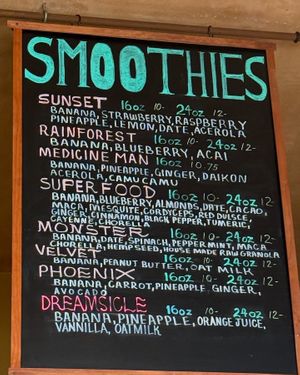 SMOOTHIES
SUNSET 16oz 10- 24oz 12-
BANANA, STRAWBERRY, RASPBERRY
PINEAPPLE, LEMON, DATE, ACEROLA
RAINFOREST 16oz 10- 24oz 12-
BANANA, BLUEBERRY, ACAI
MEDICINE MAN 16oz 10.75
BANANA, PINEAPPLE, GINGER, DAIKON
ACEROLA, CAMU CAMU
SUPER FOOD 16oz 10- 24oz 12-
BANANA, BLUEBERRY, ALMONDS, DATE, CACAO,
MACA, MESQUITE, CORDYCEPS, RED DULSE,
GINGER, CINNAMON, BLACK PEPPER, TUMERIC,
CAYENNE, CHORELLA
MONSTER 16oz 10- 24oz 12-
BANANA, DATE, SPINACH, PEPPERMINT, MACA
CHORELLA, HEMPSEED, HOUSE MADE RAW GRANOLA
VELVET 16oz 10- 24oz 12-
BANANA, PEANUT BUTTER, OAT MILK
PHOENIX 16oz 10- 24oz 12-
BANANA, CARROT, PINEAPPLE, GINGER,
AVOCADO
DREAMSICLE 16oz 10- 24oz 12-
BANANA, PINEAPPLE, ORANGE JUICE,
VANNILLA, OATMILK